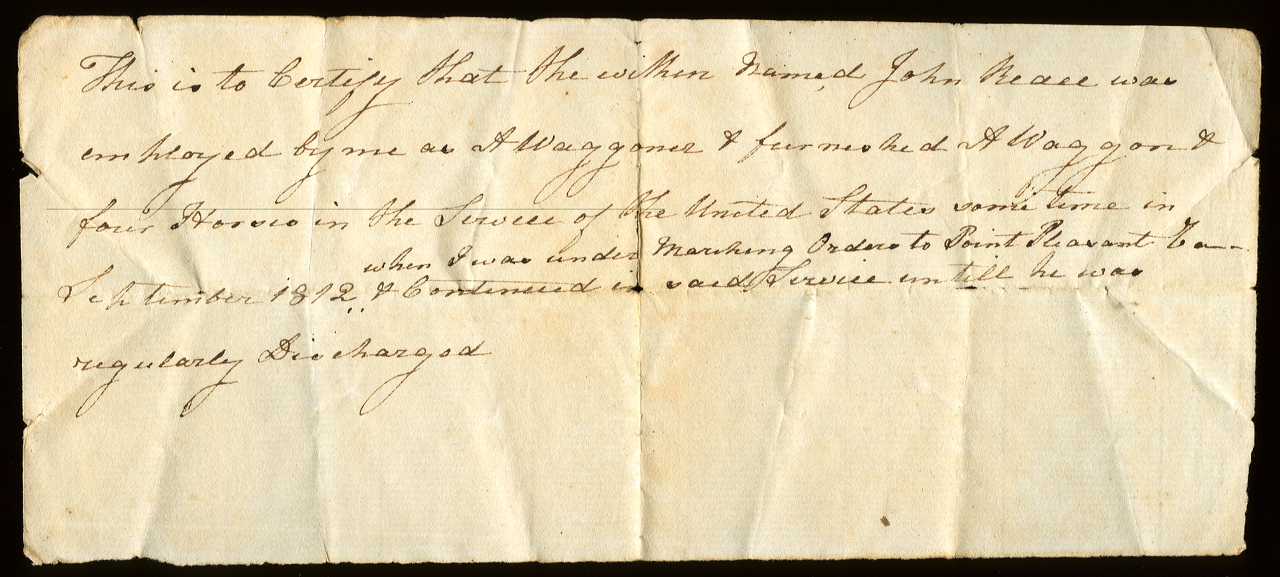 This is to Certify that the within Named John Reace was
employed by me as A Waggoner & furneshed A Waggon &
four Horses in the Service of the United States some time in
when I was under Marching Orders to Point Pleasant Va
September 1812 & Contenued in said Service untill he was
regularly Discharged